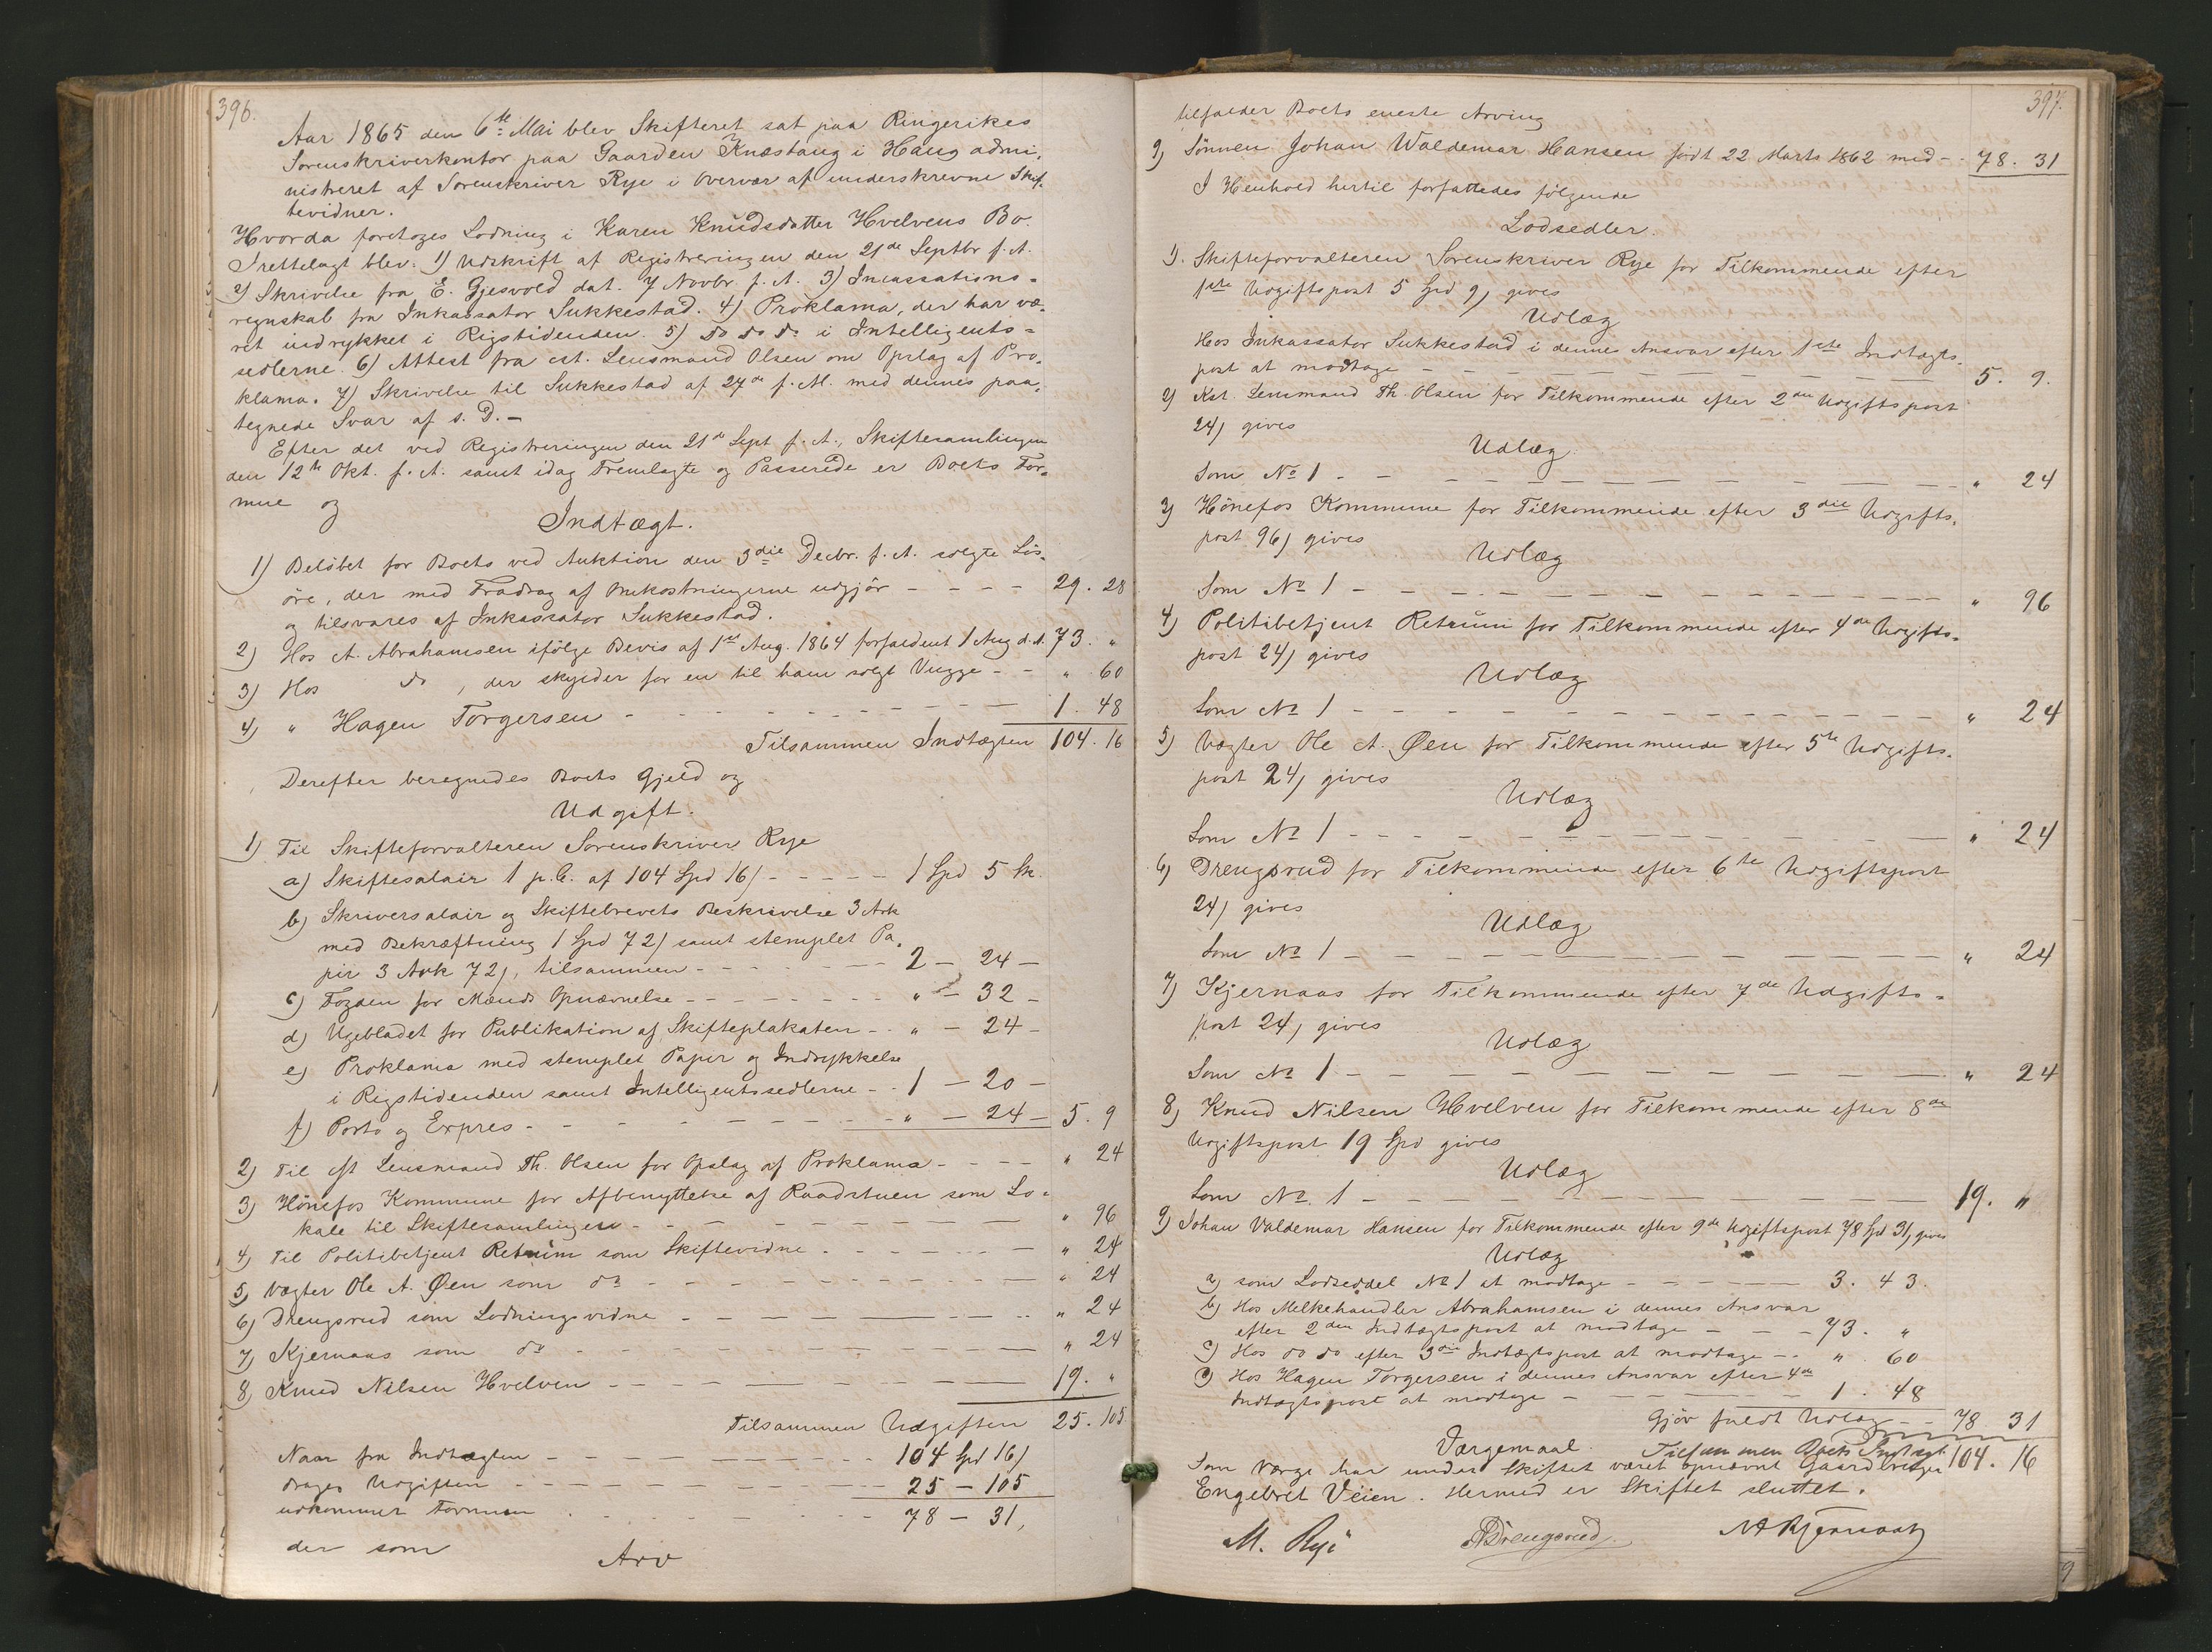 396.
Aar 1865 den 6te Mai blev Skifteret sat paa Ringerikes
Sorenskriverkontor paa Gaarden Knæstang i Haug admi-
nistreret af Sorenskriver Rye i Overvær af underskrevne Skif-
tevidner.
Hvorda foretoges Lodning i Karen Knudsdatter Hvelvens Bo.
Irettelagt blev: 1) Udskrift af Registreringen den 21de Septbr f. A.
2) Skrivelse fra E. Gjesvold dat. 7 Novbr f. A. 3) Incassations-
regnskab fra Inkassator Sukkestad. 4) Proklama, der har væ-
ret indrykket i Rigstidenden. 5) do do do i Intelligents-
sedlerne. 6) Attest fra cst. Lensmand Olsen om Opslag af Pro-
klama. 7) Skrivelse til Sukkestad af 24de f. M. med dennes paa-
tegnede Svar af s. D. –
Efter det ved Registreringen den 21de Sept f. A., Skiftesamlingen
den 12te Okt. f. A. samt idag Fremlagte og Passerede er Boets For-
mue og
Indtægt.
1) Beløbet for Boets ved Auktion den 3die Decbr. f. A. solgte Løs-
øre, der med Fradrag af Omkostningerne udgjør - - - - 29. 28
og tilsvares af Inkassator Sukkestad.
2) Hos A. Abrahamsen ifølge Bevis af 1ste Aug. 1864 forfaldent 1 Aug d. A. 73. "
3) Hos do, der skylder for en til ham solgt Vugge - - " 60
4) " Hagen Torgersen - - - - - 1. 48
Tilsammen Indtægten 104. 16
Derefter beregnedes Boets Gjeld og
Udgift.
1) Til Skifteforvalteren Sorenskriver Rye
a) Skiftesalair 1 p.C. af 104 Spd 16/ - - - - - 1 Spd 5 Sk.
b) Skriversalair og Skiftebrevets Beskrivelse 3 Ark
med Bekræftning 1 Spd 72/ samt stemplet Pa-
pir 3 Ark 72/, tilsammen - - - - - 2 – 24 –
c) Fogden for Mænds Opnævnelse - - - - - " – 32 –
d) Ugebladet for Publikation af Skifteplakaten - - " – 24 –
e) Proklama med stemplet Papir og Indrykkelse
i Rigstidenden samt Intelligentssedlerne - - 1 – 20 –
f) Porto og Expres - - - - - " – 24 – 5. 9
2) Til cst Lensmand Th. Olsen for Opslag af Proklama - - - - " 24
3) Hønefos Kommune for Afbenyttelse af Raadstuen som Lo-
kale til Skiftesamlingen - - - - - " 96
4) Til Politibetjent Retrum som Skiftevidne - - - - - " 24
5) Vægter Ole A. Øen som do - - - - - " 24
6) Drengsrud som Lodningsvidne - - - - - " 24
7) Kjernaas som do - - - - - " 24
8) Knud Nilsen Hvelven - - - - - 19. "
Tilsammen Udgiften 25. 105
Naar fra Indtægten - - - - - 104 Spd 16/
drages Udgiften - - - - - 25 – 105
udkommer Formuen - - - - - 78 – 31,
der som
Arv
397.
tilfalder Boets eneste Arving
9) Sønnen Johan Waldemar Hansen født 22 Marts 1862 med - - 78. 31
I Henhold hertil forfattedes følgende
Lodsedler.
1). Skifteforvalteren Sorenskriver Rye for Tilkommende efter
1ste Udgiftspost 5 Spd 9/ gives
Udlæg
Hos Inkassator Sukkestad i dennes Ansvar efter 1ste Indtægts-
post at modtage - - - - - 5. 9.
2) Kst. Lensmand Th. Olsen for Tilkommende efter 2den Udgiftspost
24/ gives
Udlæg
Som No 1 - - - - - " 24
3) Hønefos Kommune for Tilkommende efter 3die Udgifts-
post 96/ gives
Udlæg
Som No 1 - - - - - " 96
4) Politibetjent Retrum for Tilkommende efter 4de Udgifts-
post 24/ gives
Udlæg
Som No 1 - - - - - " 24
5) Vægter Ole A. Øen for Tilkommende efter 5te Udgifts-
post 24/ gives
Udlæg
Som No 1 - - - - - " 24
6) Drengsrud for Tilkommende efter 6te Udgiftspost
24/ gives
Udlæg
Som No 1 - - - - - " 24
7) Kjernaas for Tilkommende efter 7de Udgifts-
post 24/ gives
Udlæg
Som No 1 - - - - - " 24
8) Knud Nilsen Hvelven for Tilkommende efter 8de
Udgiftspost 19 Spd gives
Udlæg
Som No. 1 - - - - - 19. "
9) Johan Valdemar Hansen for Tilkommende efter 9de Udgiftspost 78 Spd 31/ gives
Udlæg
a) som Lodseddel No 1 at modtage - - - - - 3. 43.
b) Hos Melkehandler Abrahamsen i dennes Ansvar
efter 2den Indtægtspost at modtage - - - 73. "
c) Hos do do efter 3die Indtægtspost at modtage - - " 60
d) Hos Hagen Torgersen i dennes Ansvar efter 4de
Indtægtspost at modtage - - - - - 1. 48
Gjør fuldt Udlæg - - 78 31
Tilsammen Boets Indtægt 104. 16
Værgemaal.
Som Værge har under Skiftet været opnævnt Gaardbruger
Engebret Veien. Hermed er Skiftet sluttet.
M. Rye
Drengsrud.
Kjernaas